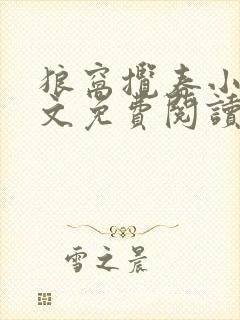 狼窩攬春小
文免費閱讀
雪之晨